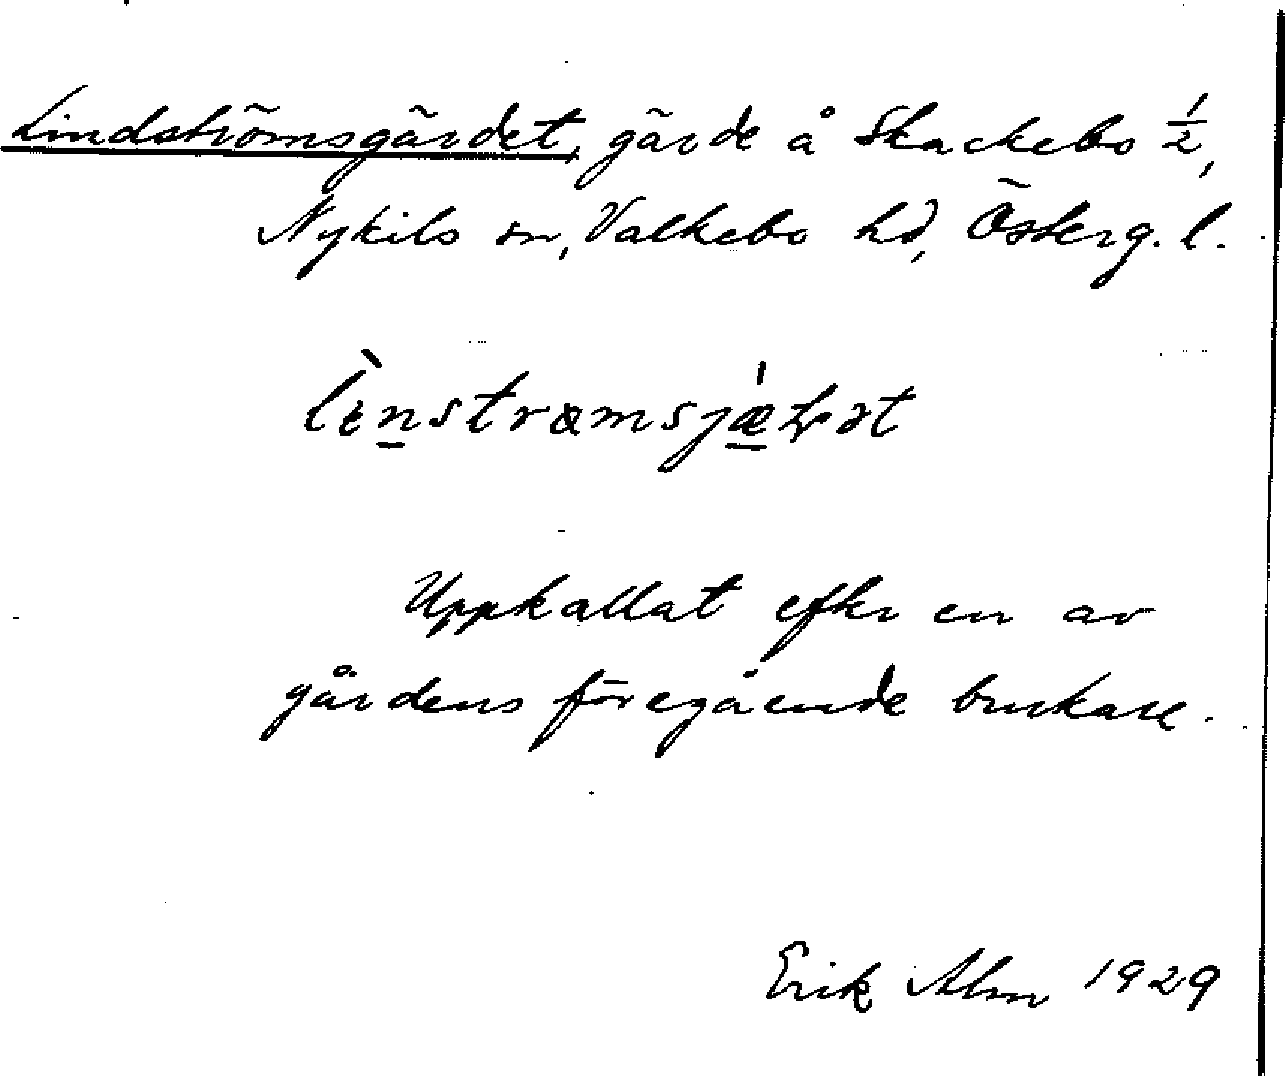 Lindströmsgärdet, gärde å Skackebo 1/2,
Nykils sn, Valkebo hd, Österg. l.
Uppkallat efter en av
gårdens föregående brukare.
Erik Alm 1929